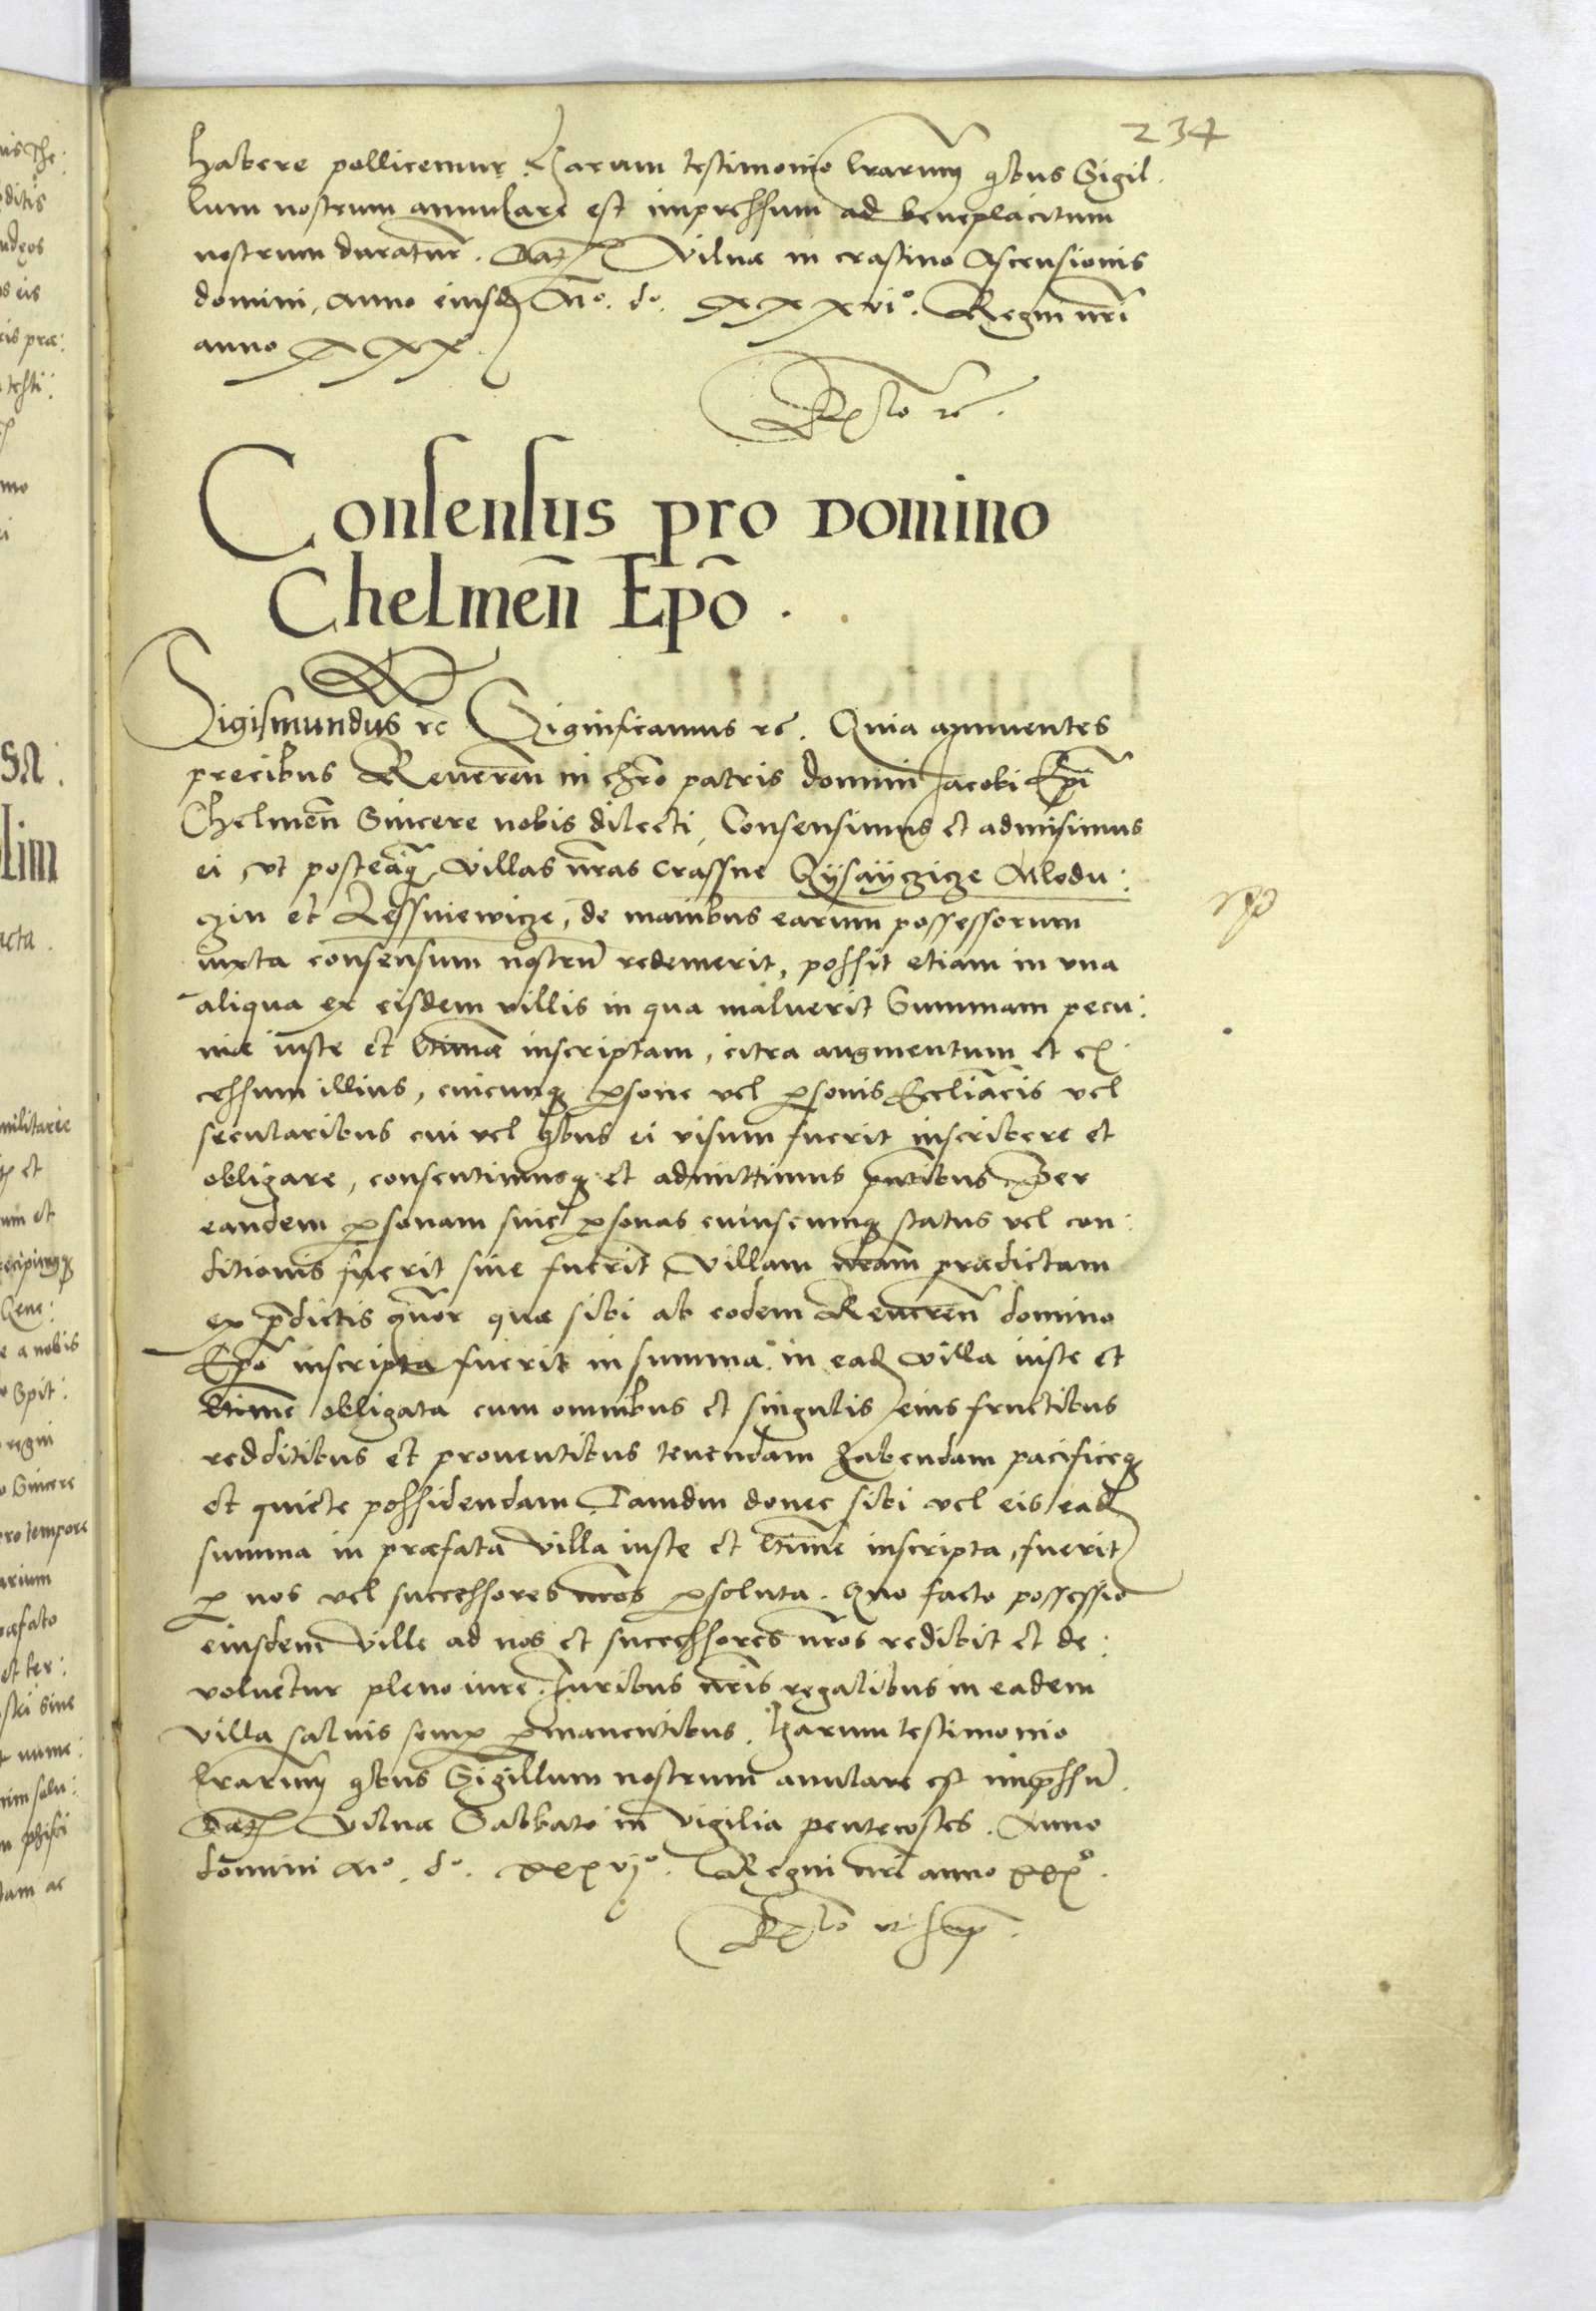 234
habere pollicemur. Harum testimonio lrarum qbus Sigil
lum nostrum annulare est impressum ad beneplacitum
nostrum duratur. Dat Vilnæ in crastino Ascensionis
domini, anno eiusd Mo. do. xxxvio. Regni nri
anno xxx.
Rlo rc.
Consensus pro Domino
Chelmen̄ Epō.
Sigismundus rc Significamus rc. Quia annuentes
precibus Reueren̄ in chro patris domini Iacobi Epi
Chelmen̄ Sincere nobis dilecti, Consensimus et admisimus
ei, vt posteaq villas nras Crassne Mlodu:
czin et Lessniewicze, de manibus earum possessorum
iuxta consensum nostrū redemerit, possit etiam in vna
aliqua ex eisdem villis in qua maluerit Summam pecu:
niæ iuste et ltime inscriptam, citra augmentum et ex
cessum illius, cuicunq psone vel psonis Ecclīacis vel
secularibus cui vel qbus ei visum fuerit inscribere et
obligare, consentimusq et admittimus pntibus Per
eandem psonam siue psonas cuiuscunq status vel con:
ditionis fuerit siue fuerīt Villam nram prædictam
ex pdictis qtuor quæ sibi ab eodem Reueren̄ domino
Epo inscripta fuerit in summa in ead villa iuste et
ltime obligata cum omnibus et singulis eius fructibus
redditibus et prouentibus tenendam habendam pacificeq
et quiete possidendam Tamdiu donec sibi vel eis ead
summa in præfata villa iuste et ltime inscripta, fuerit
p nos vel successores nros psoluta. Quo facto possessio
eiusdem Ville ad nos et successores nros redibit et de:
voluetur pleno iure. Iuribus nris regalibus in eadem
villa saluis semp pmanentibus. Harum testimonio
lrarum qbus Sigillum nostrum anulare est impssū.
Dat Vilnæ Sabbato in vigilia pentecostes. Anno
domini Mo. do. xxxvjo. Regni nri anno xxxo.
Rlo vt sup.